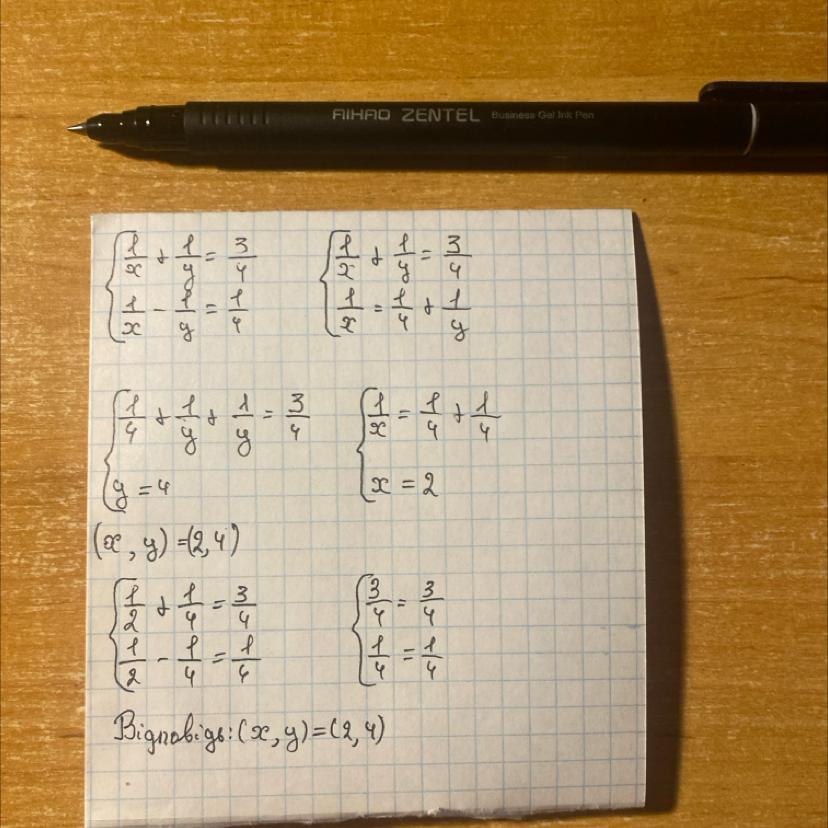 AIHAO ZENTEL Business Gel Ink Pen
{ 1/x + 1/y = 3/4
1/x - 1/y = 1/4
{ 1/x + 1/y = 3/4
1/x = 1/4 + 1/y
{ 1/4 + 1/y + 1/y = 3/4
y = 4
{ 1/x = 1/4 + 1/4
x = 2
(x, y) = (2, 4)
{ 1/2 + 1/4 = 3/4
1/2 - 1/4 = 1/4
{ 3/4 = 3/4
1/4 = 1/4
Відповідь: (x, y) = (2, 4)